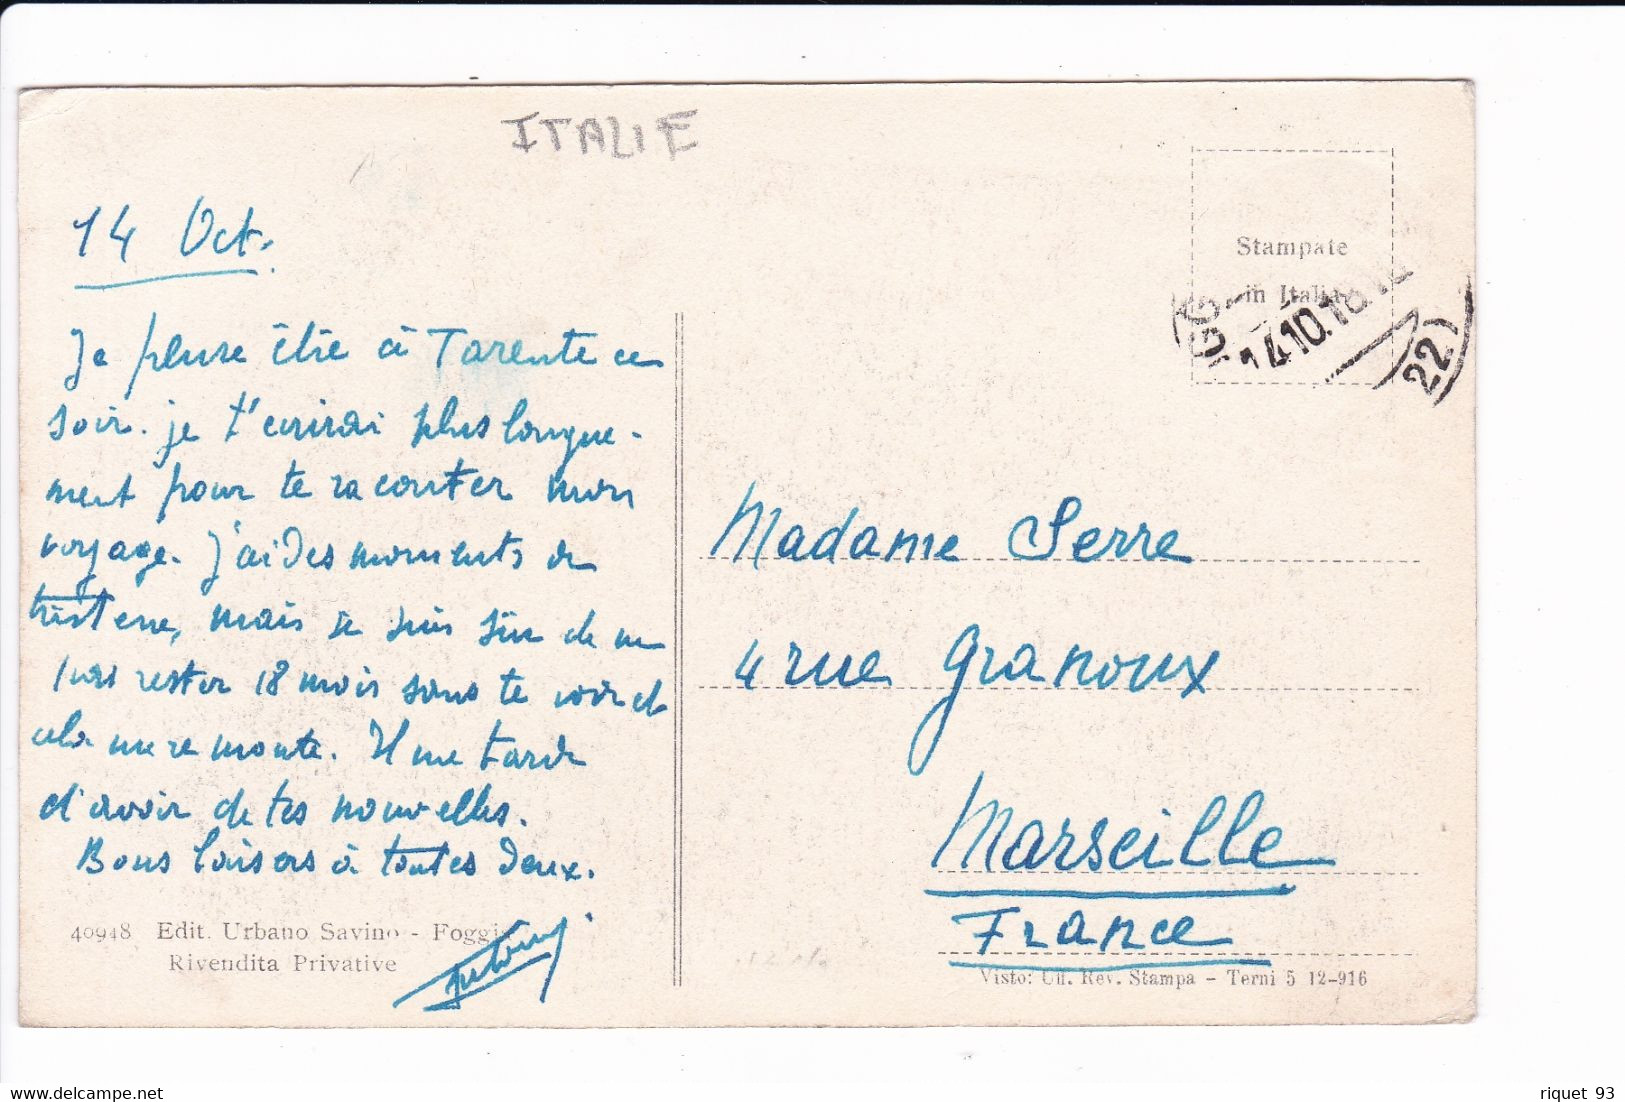 ITALIE
14 Oct.
Je pense être à Tarente ce
soir. je t'écrirai plus longue-
ment pour te raconter mon
voyage. J'ai des moments de
tristesse, mais je suis sûr de ne
pas rester 18 mois sans te voir et
cela me remonte. Il me tarde
d'avoir de tes nouvelles.
Bons baisers à toutes deux.
40948 Edit. Urbano Savino - Foggia
Rivendita Privative
Stampate
in Italia
14.10.18
22)
Madame Serre
4 rue Granoux
Marseille
France
Visto: Uff. Rev. Stampa - Terni 5 12-916
riquet 93